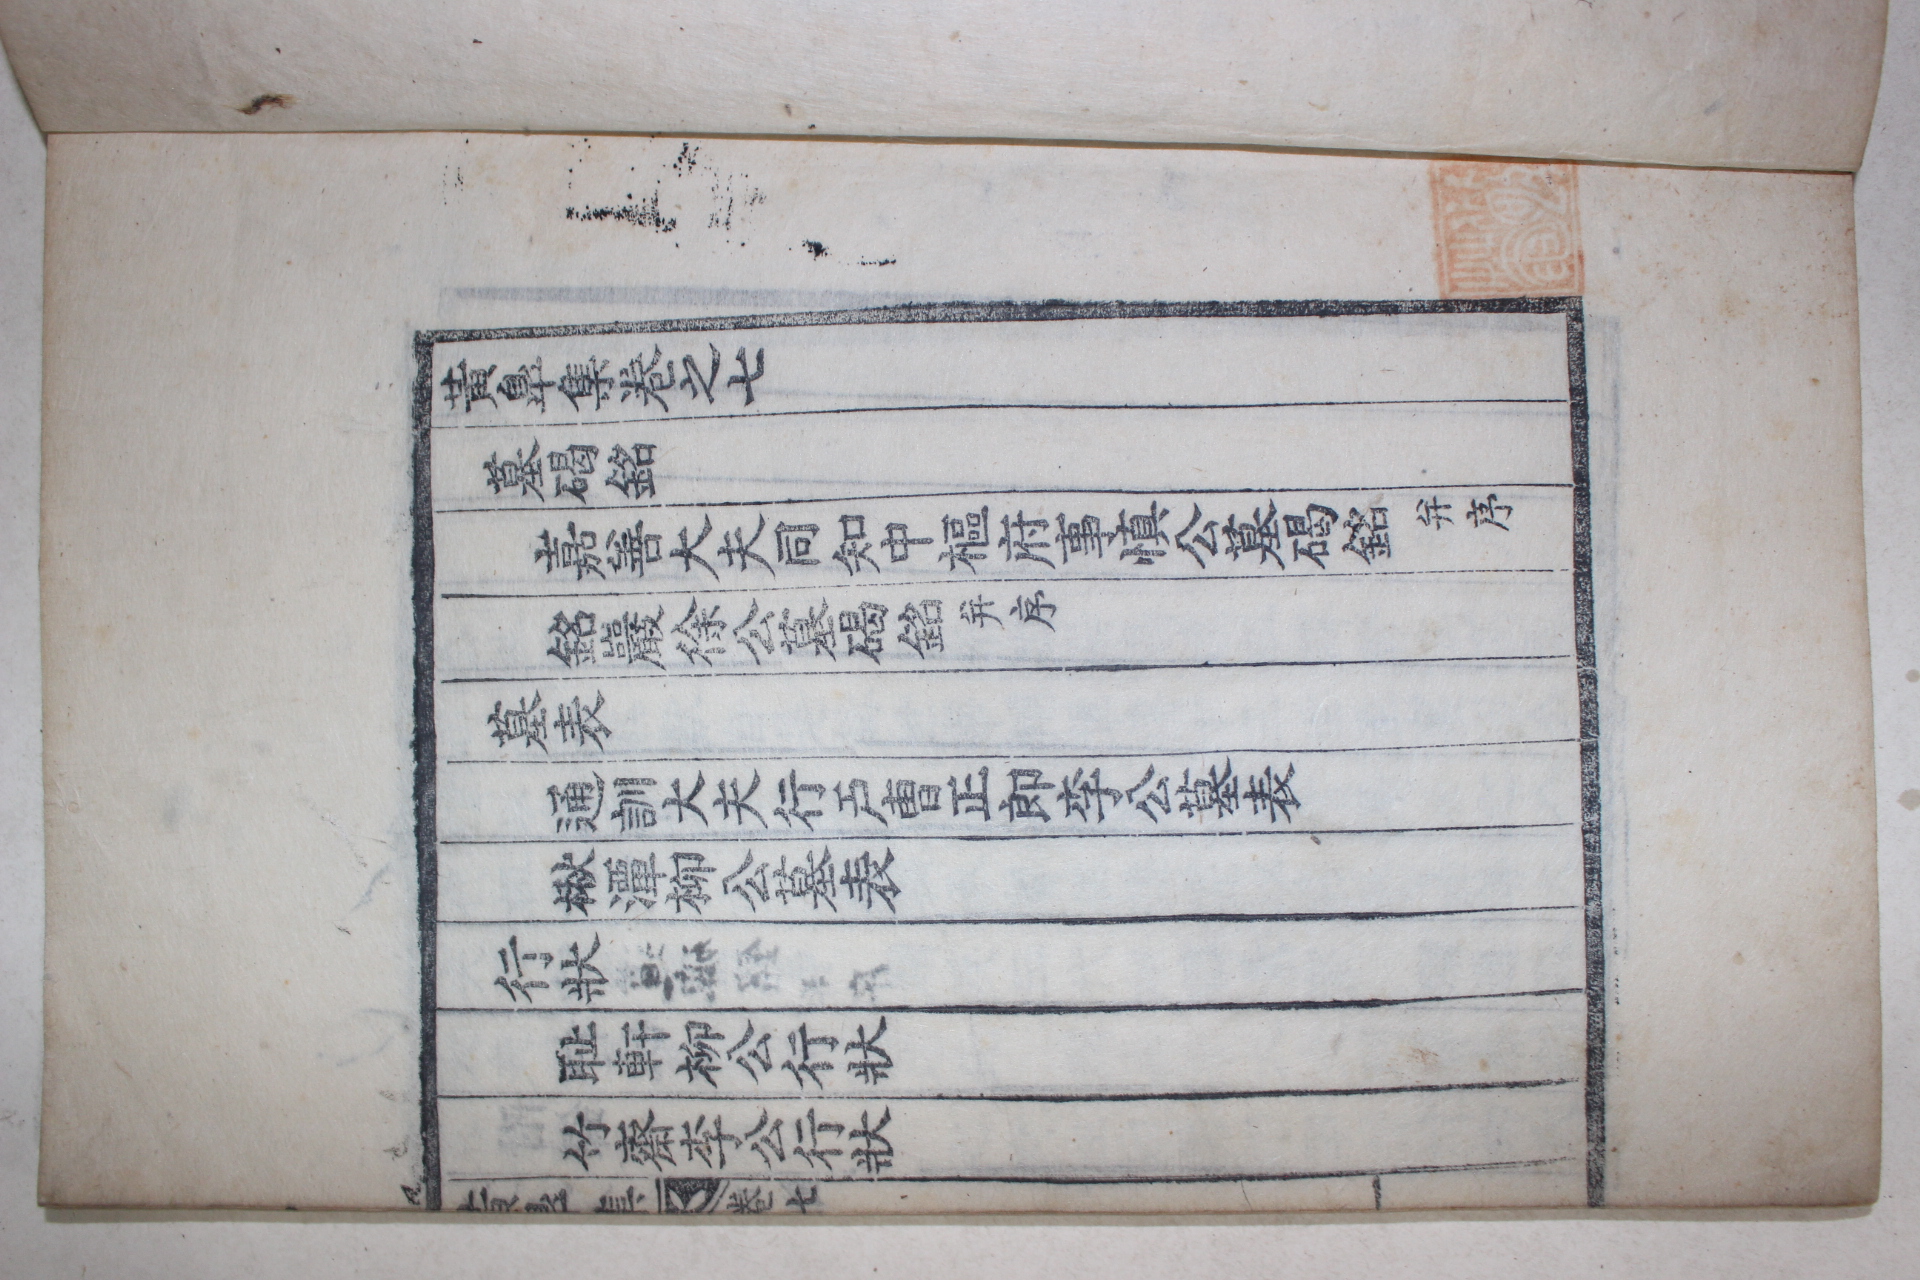 黃皐集卷之七
墓碣銘
嘉善大夫同知中樞府事愼公墓碣銘 幷序
銘巖徐公墓碣銘 幷序
墓表
通訓大夫行戶曺正郎李公墓表
楸潭柳公墓表
行狀
耻軒柳公行狀
竹齋李公行狀
黃皐集 卷七 一